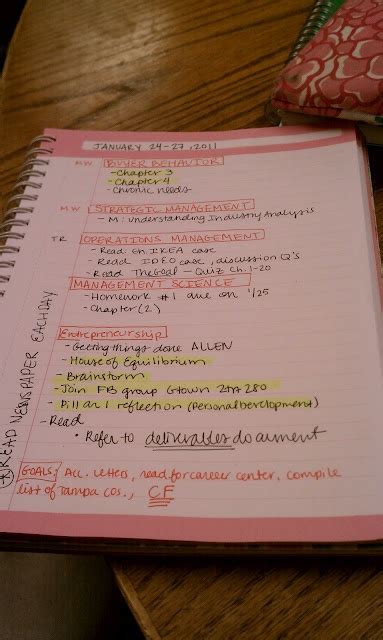 JANUARY 24-27, 2011
MW BUYER BEHAVIOR
- Chapter 3
- Chapter 4
- Chronic needs
MW STRATEGIC MANAGEMENT
- M: Understanding Industry Analysis
TR OPERATIONS MANAGEMENT
- Read: Gn. IKEA case
- Read IDEO case, discussion Q's
- Read The Goal - Quiz Ch. 1-20
MANAGEMENT SCIENCE
- Homework #1 due on 1/25
- Chapter (2)
Entrepreneurship
- Getting things done ALLEN
- House of Equilibrium
- Brainstorm
- Join FB group Gtown 280
- Pill an 1 reflection (Personal
- Read
• Refer to deliverables document
GOALS: Acc. letters, read for career center, compile
list of Tampa cos., CF
READ NEWSPAPER EACH DAY